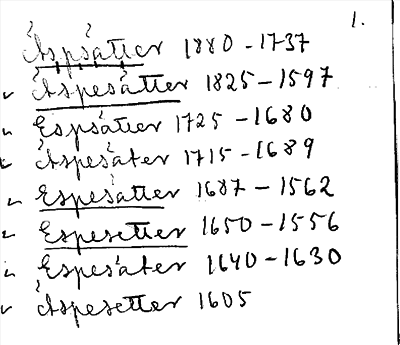 1.
Äspsätter 1880-1737
Äspesätter 1825-1597
Espsätter 1725-1680
Äspesäter 1715-1689
Espesätter 1687-1562
Espesetter 1650-1556
Espesäter 1640-1630
Äspesetter 1605